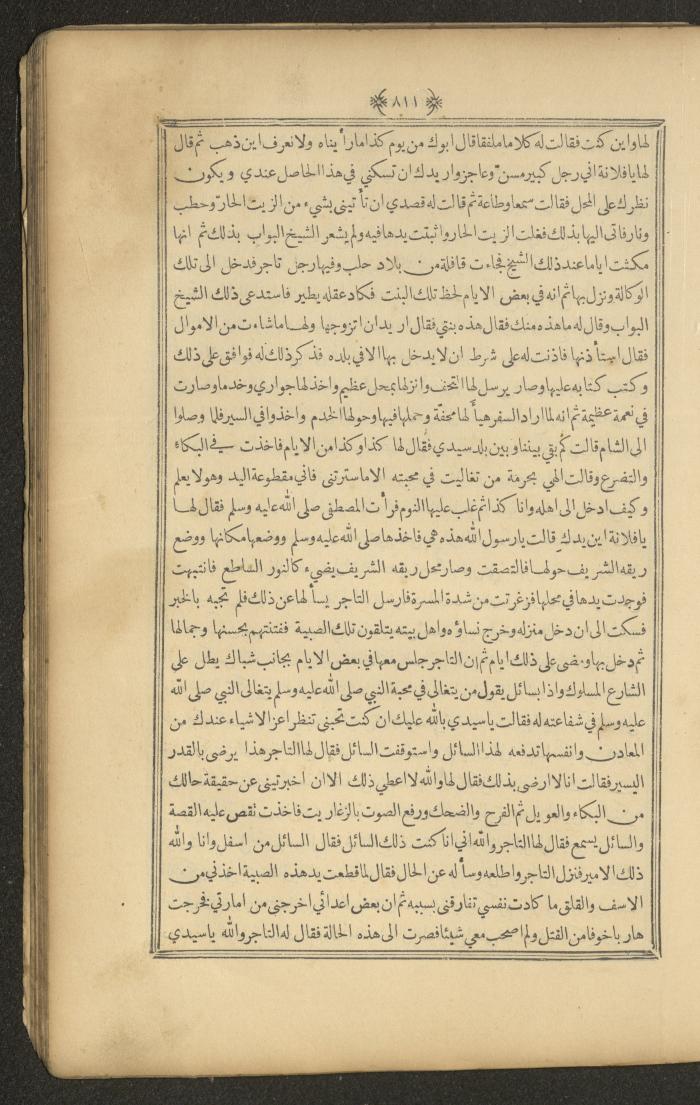 ﴿٨١١﴾
لها واين كنت فقالت له كلاما ملفقا قال ابوك من يوم كذا ما رأيناه ولا نعرف اين ذهب ثم قال
لها يا فلانة اني رجل كبير مسنّ وعاجز واريدك ان تسكني في هذا الحاصل عندي ويكون
نظرك على المحل فقالت سمعا وطاعة ثم قالت له قصدي ان تأتيني بشيء من الزيت الحارّ وحطب
ونار فاتى اليها بذلك فغلت الزيت الحار واثبتت يدها فيه ولم يشعر الشيخ البواب بذلك ثم انها
مكثت اياما عند ذلك الشيخ فجاءت قافلة من بلاد حلب وفيها رجل تاجر فدخل الى تلك
الوكالة ونزل بها ثم انه في بعض الايام لحظ تلك البنت فكاد عقله يطير فاستدعى ذلك الشيخ
البواب وقال له ما هذه منك فقال هذه بنتي فقال اريد ان اتزوجها ولهـا ما شاءت من الاموال
فقال استأذنها فاذنت له على شرط ان لا يدخل بها الا في بلده فذكر ذلك له فوافق على ذلك
وكتب كتابه عليها وصار يرسل لها التحف وانزلها بمحل عظيم واخذ لها جواري وخدما وصارت
في نعمة عظيمة ثم انه لما اراد السفر هيأ لها محفّة وحملها فيها وحولها الخدم واخذوا في السير فلما وصلوا
الى الشام قالت كم بقي بيننا وبين بلد سيدي فقال لها كذا وكذا من الايام فاخذت في البكاء
والتضرع وقالت الهي بحرمة من تغاليت في محبته الا ما سترتني فاني مقطوعة اليد وهو لا يعلم
وكيف ادخل الى اهله وانا كذا ثم غلب عليها النوم فرأت المصطفى صلى الله عليه وسلم فقال لهـا
يا فلانة اين يدك قالت يا رسول الله هذه هي فاخذها صلى الله عليه وسلم ووضعها مكانها ووضع
ريقه الشريف حولها فالتصقت وصار محل ريقه الشريف يضيء كالنور الساطع فانتبهت
فوجدت يدها في محلها فزغرتت من شدة المسرة فارسل التاجر يسألها عن ذلك فلم تجبه بالخبر
فسكت الى ان دخل منزله وخرج نساؤه واهل بيته يتلقون تلك الصبية ففتنتهم بحسنها وجمالها
ثم دخل بها ومضى على ذلك ايام ثم ان التاجر جلس معها في بعض الايام بجانب شباك يطل على
الشارع المسلوك واذا بسائل يقول من يتغالى في محبة النبي صلى الله عليه وسلم يتغالى النبي صلى الله
عليه وسلم في شفاعته له فقالت يا سيدي بالله عليك ان كنت تحبني تنظر اعز الاشياء عندك من
المعادن وانفسها تدفعه لهذا السائل واستوقفت السائل فقال لها التاجر هذا يرضى بالقدر
اليسير فقالت انا لا ارضى بذلك فقال لها والله لا اعطي ذلك الا ان اخبرتيني عن حقيقة حالك
من البكاء والعويل ثم الفرح والضحك ورفع الصوت بالزغاريت فاخذت تقص عليه القصة
والسائل يسمع فقال لها التاجر والله اني انا كنت ذلك السائل فقال السائل من اسفل وانا والله
ذلك الامير فنزل التاجر واطلعه وسأله عن الحال فقال لما قطعت يد هذه الصبية اخذني من
الاسف والقلق ما كادت نفسي تفارقني بسببه ثم ان بعض اعدائي اخرجني من امارتي فخرجت
هاربا خوفا من القتل ولم اصحب معي شيئا فصرت الى هذه الحالة فقال له التاجر والله يا سيدي